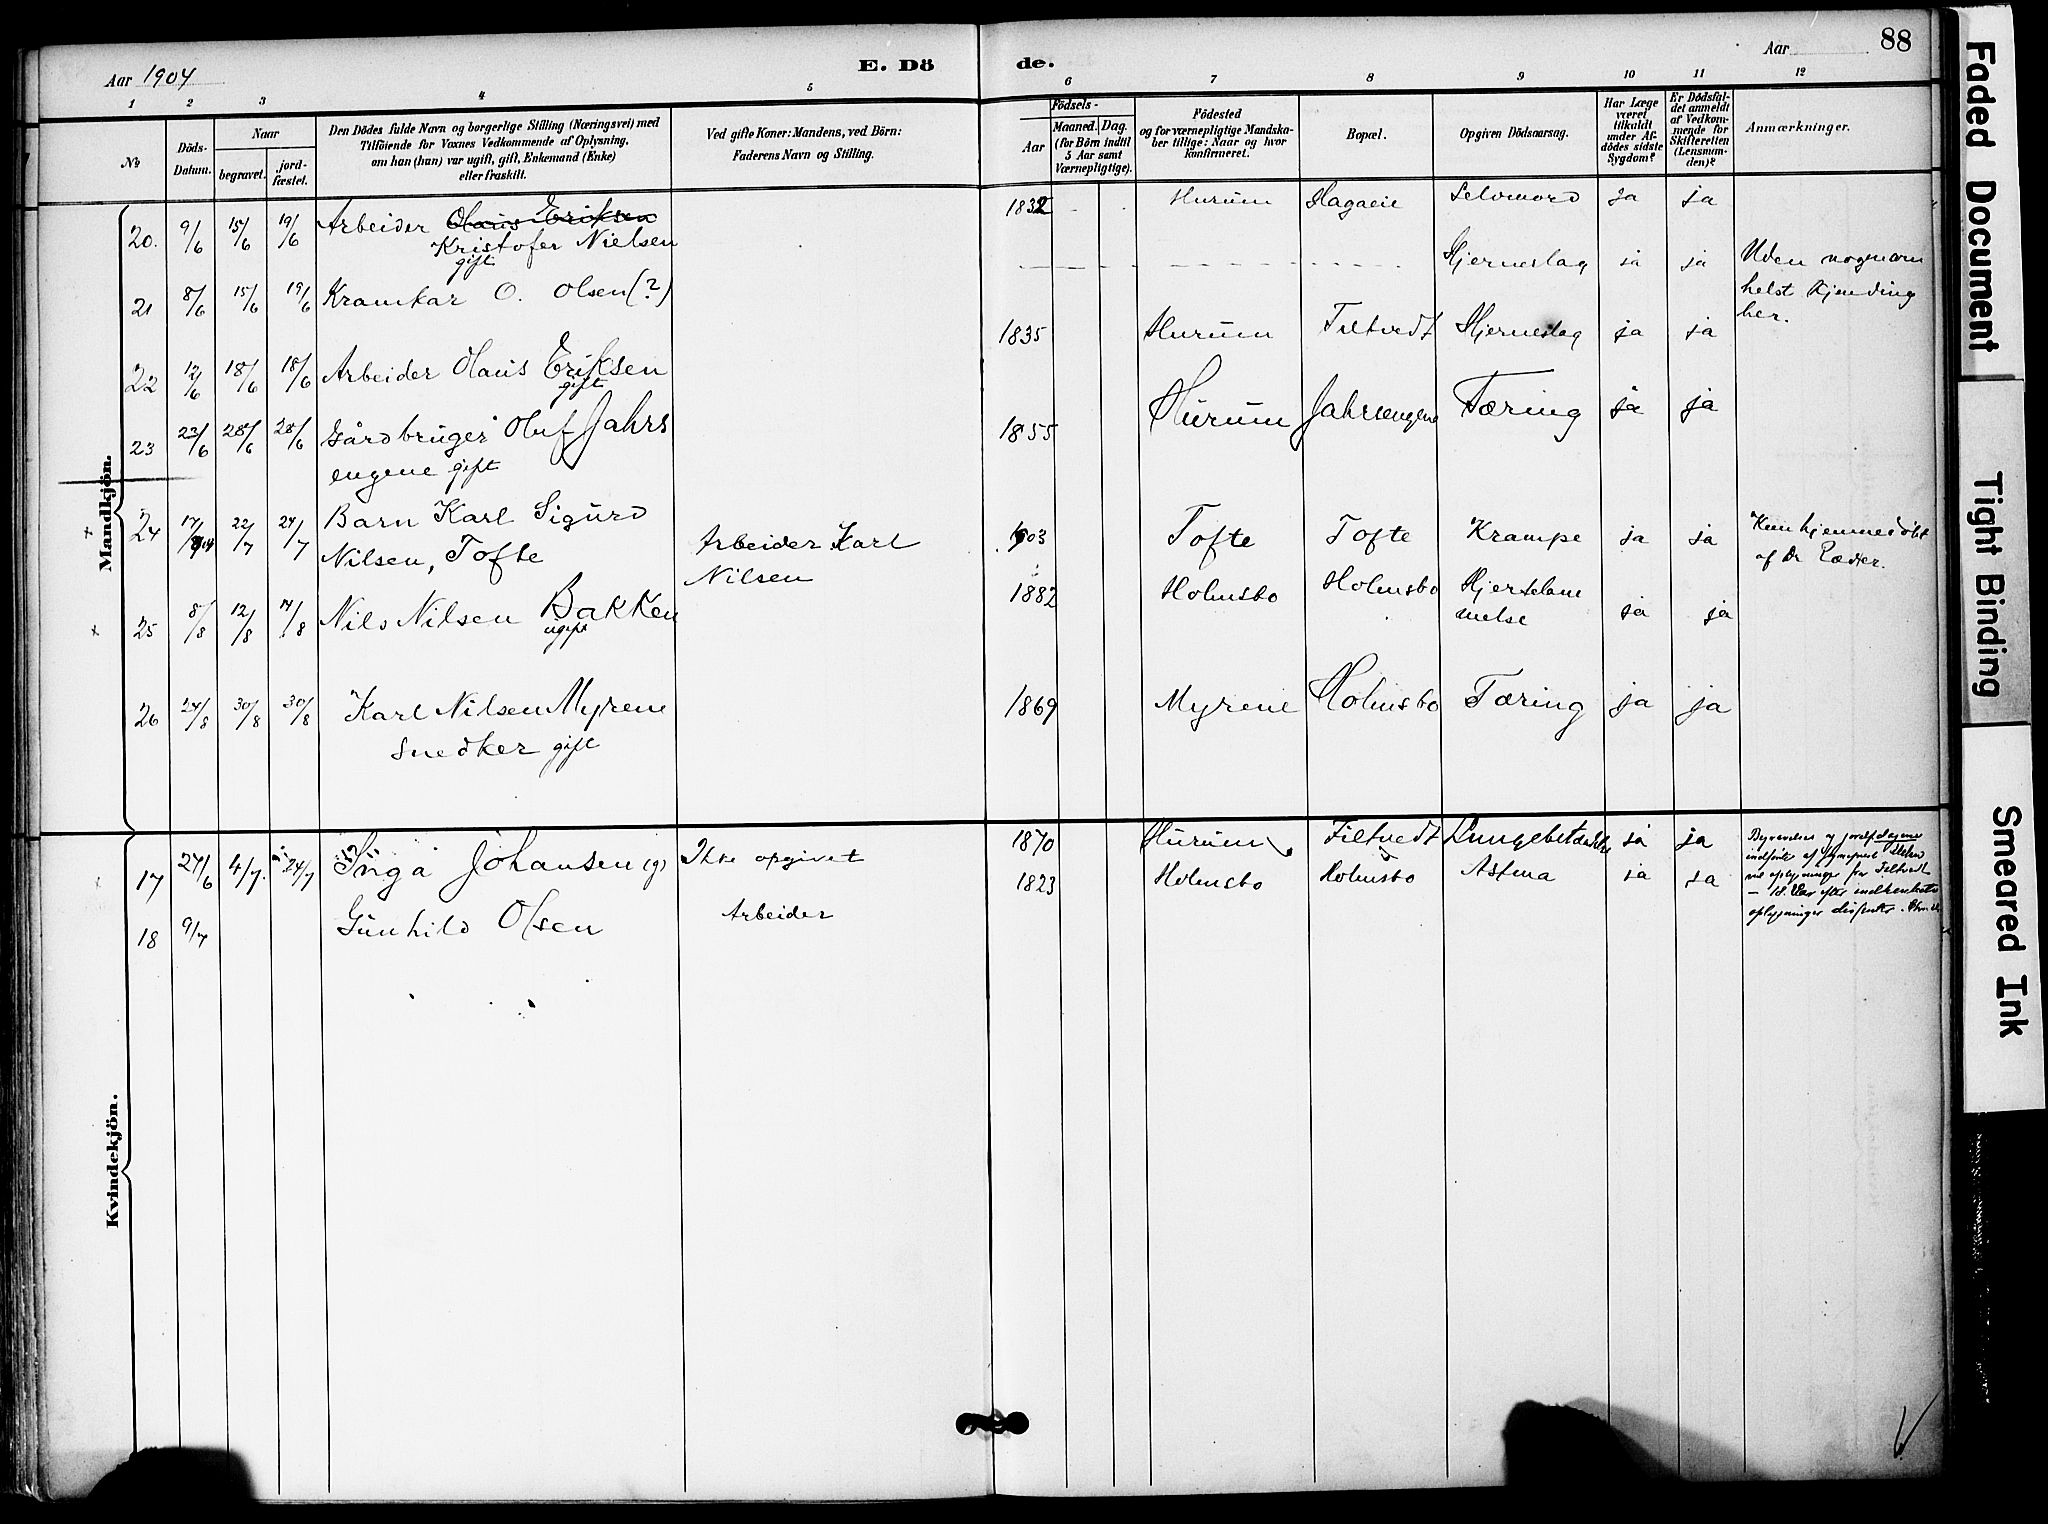 Aar 1904
E. Dö
de.
Aar
88
1 2 3 4 5 6 7 8 9 10 11 12
No
Döds-
Datum.
Naar
begravet.
jord-
fæstet.
Den Dödes fulde Navn og borgerlige Stilling (Næringsvei) med
Tilföiende for Voxnes Vedkommende af Oplysning,
om han (hun) var ugift, gift, Enkemand (Enke)
eller fraskilt.
Ved gifte Koner: Mandens, ved Börn:
Faderens Navn og Stilling.
Födsels-
Aar
Maaned. Dag.
(for Börn indtil
5 Aar samt
Værnepligtige).
Födested
og for værnepligtige Mandska-
ber tillige: Naar og hvor
konfirmeret.
Bopæl.
Opgiven Dödsaarsag.
Har Læge
været
tilkaldt
under Af-
dödes sidste
Sygdom?
Er Dödsfal-
det anmeldt
af Vedkom-
mende for
Skifteretten
(Lensman-
den)?
Anmærkninger.
Mandkjön.
20. 9/6 15/6 19/6 Arbeider Olaus Eriksen 1832 Hurum Hagaeie Selvmord ja ja
Kristofer Nielsen
gift
21 8/6 15/6 19/6 Kramkar O. Olsen (?) Hjerneslag ja ja Uden nogensom
helst Kjending
her.
22 12/6 18/6 18/6 Arbeider Olaus Eriksen 1835 Hurum Filtvedt Hjerneslag ja ja
gift
23 23/6 28/6 28/6 Gårdbruger Oluf Jahrs 1855 Hurum Jahrsengene Tæring ja ja
engene gift
24 17/7 22/7 24/7 Barn Karl Sigurd
Nilsen, Tofte Arbeider Karl
Nilsen 1903 Tofte Tofte Krampe ja ja Kun hjemmedøbt
af Dr
25 8/8 12/8 14/8 Nils Nilsen Bakken 1882 Holmsbo Holmsbo Hjertelam
melse ja ja
ugift
26 24/8 30/8 30/8 Karl Nilsen Myrene 1869 Myrene Holmsbo Tæring ja ja
Snedker gift
Kvindekjön.
17 27/6 4/7. 24/7 Inga Johansen (g) Ikke opgivet 1870 Hurum Filtvedt Lungebetændelse ja ja Begravelses og jordf.dagene
indført af
ved oplysninger fra Filtvedt
efter
oplysninger
18 9/7 Gunhild Olsen Arbeider 1823 Holmsbo Holmsbo Astma ja ja
Faded Document
Tight Binding
Smeared Ink